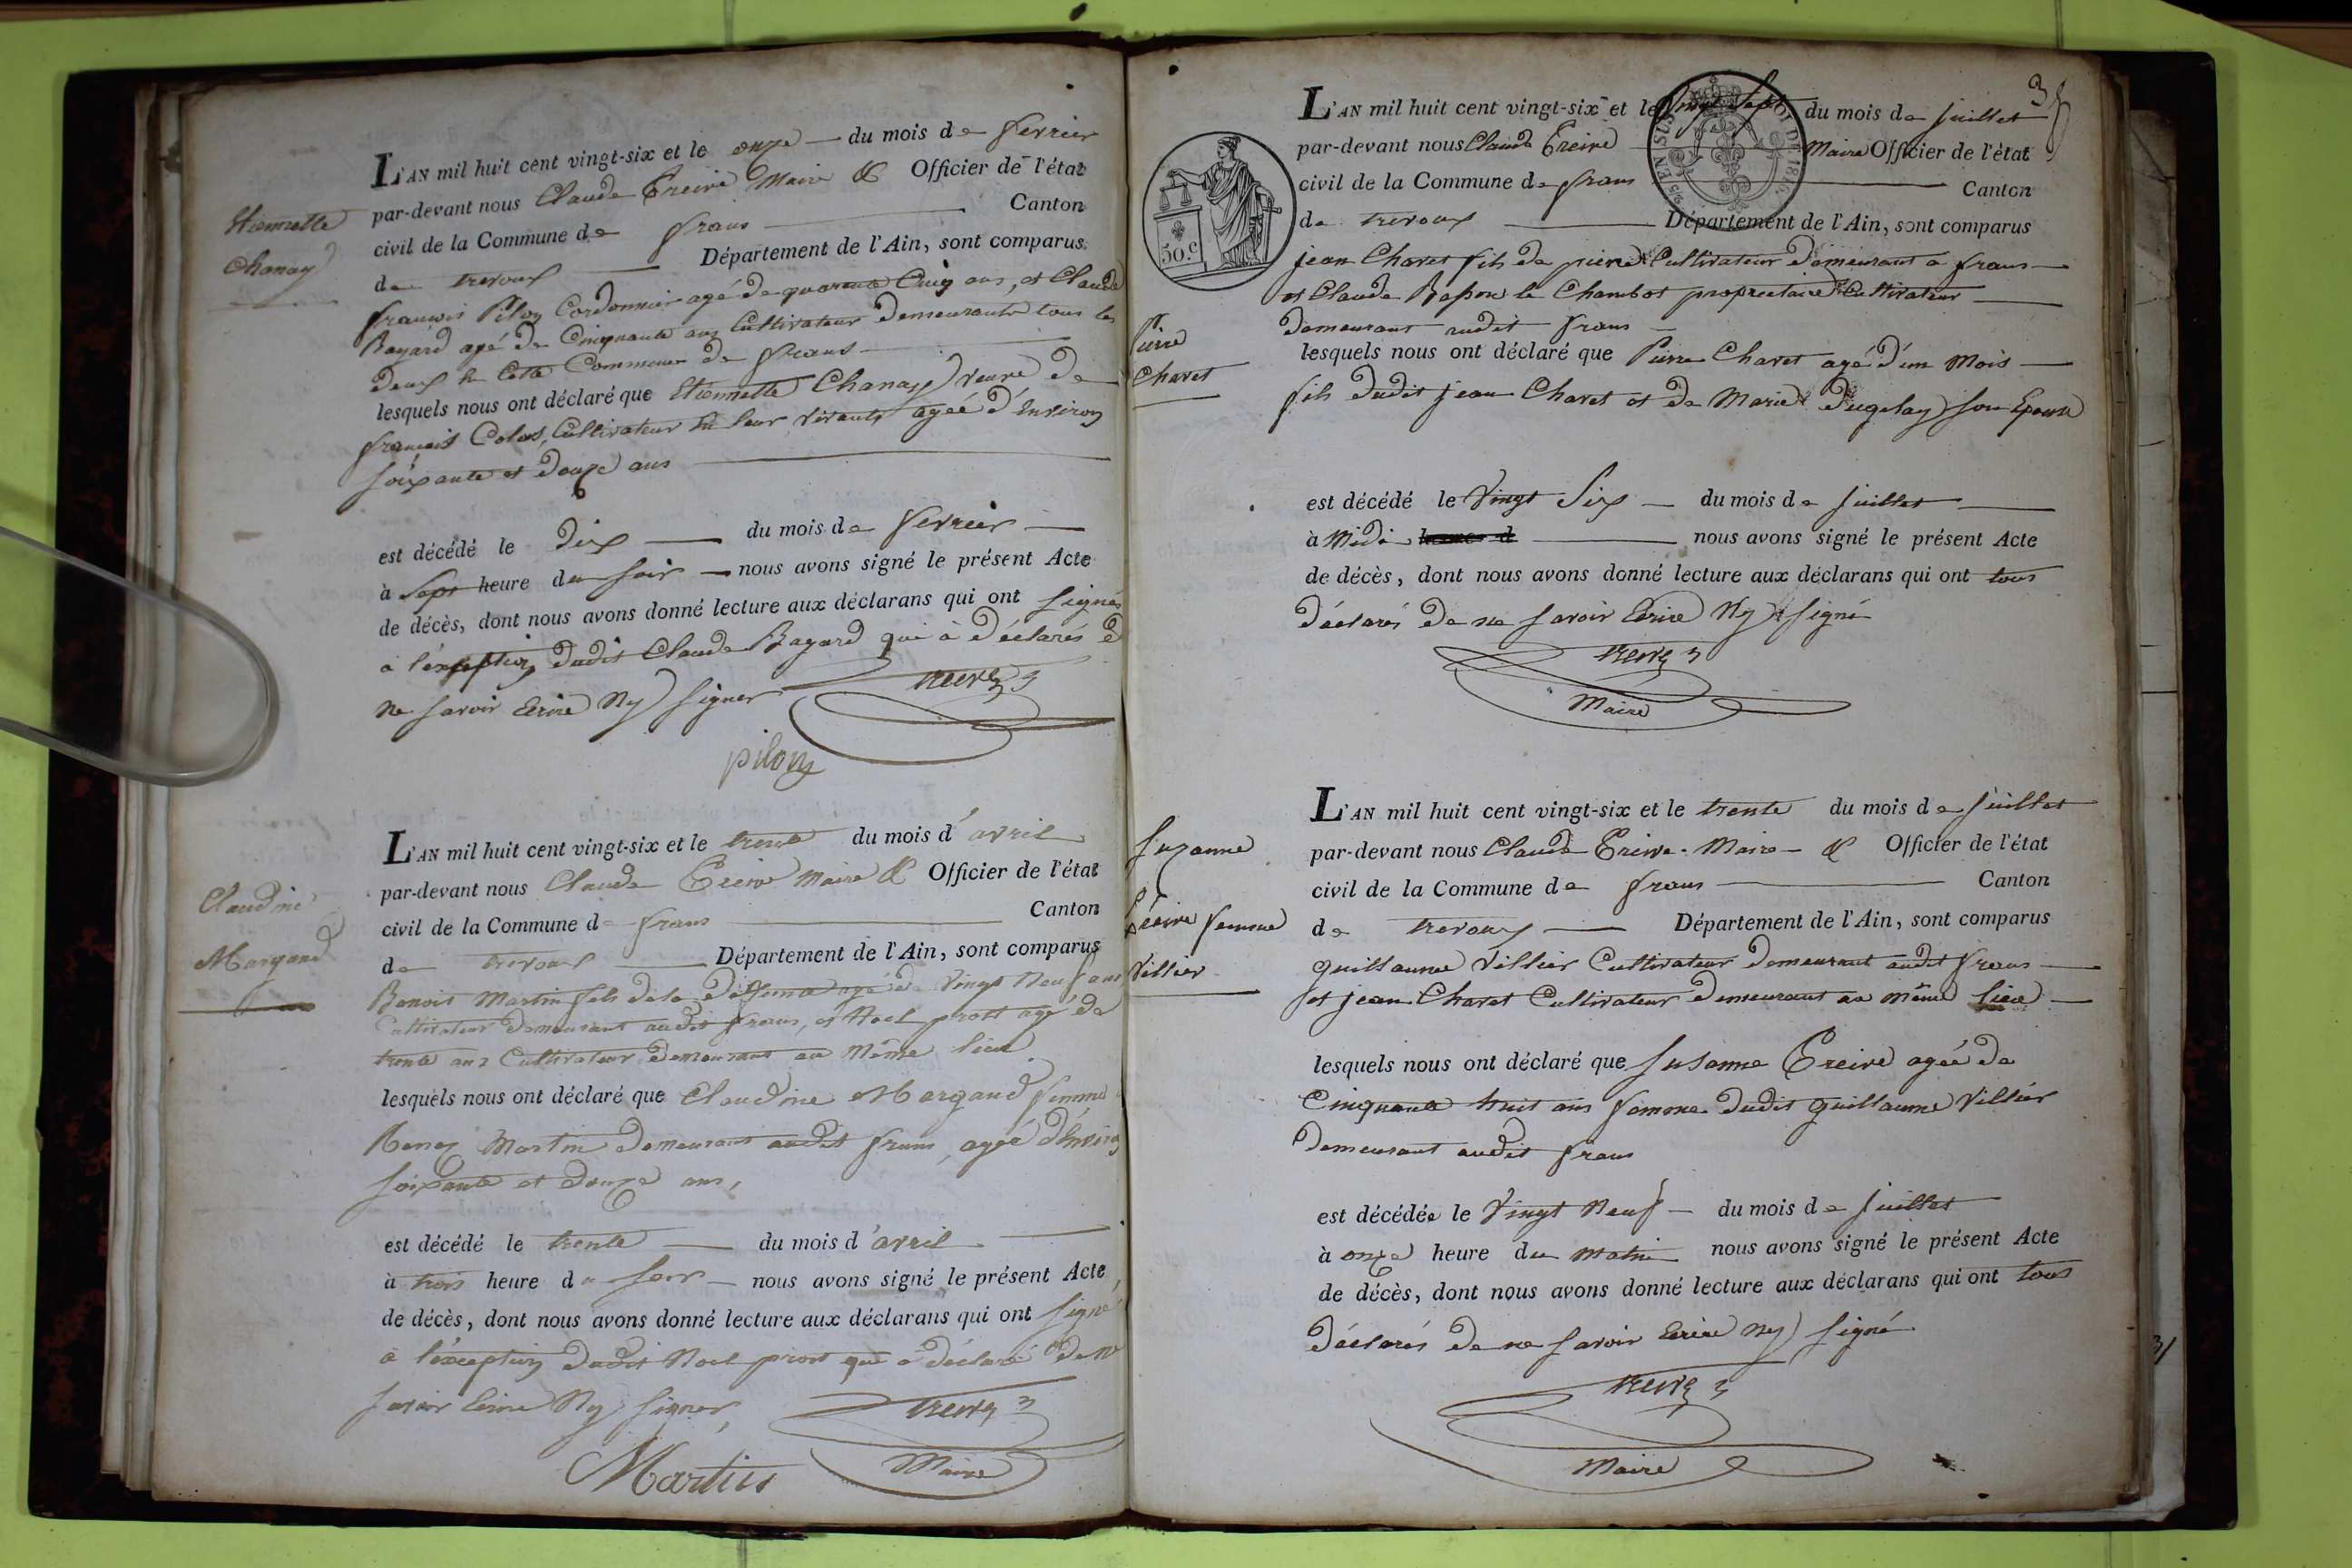 L'AN mil huit cent vingt-six et le onze du mois de fevrier
par-devant nous Claude Treive Maire & Officier de l'état
civil de la Commune de frans Canton
de trevoux Département de l'Ain, sont comparus
françois Pilon Cordonnier agé de quarante Cinq ans, et Claude
Bayard agé de Cinquante ans Cultivateur demeurants tous les
deux en Cette Commune de frans
lesquels nous ont déclaré que Etiennette Chanay veuve de
françois Colas, Cultivateur en leur vivants agée d'Environ
soixante et douze ans
Etiennette
Chanay
est décédé le dix du mois de fevrier
à Sept heure du soir nous avons signé le présent Acte
de décès, dont nous avons donné lecture aux déclarans qui ont signés
a l'éxception dudit Claude Bayard qui à déclarés de
ne savoir Ecrire Ny signer treive
pilon
L'AN mil huit cent vingt-six et le trente du mois d'avril
par-devant nous Claude Treive Maire & Officier de l'état
civil de la Commune de frans Canton
de trevoux Département de l'Ain, sont comparus
Benoit Martin fils de la deffunte agé de Vingt Neuf ans
Cultivateur demeurant audit frans, et Noel prost agé de
trente ans Cultivateur demeurant au Même lieu
lesquels nous ont déclaré que Claudine Margand femme
Martin demeurant audit frans, agée d'Environ
soixante et douze ans,
Claudine
Margand
est décédé le trente du mois d'avril
à trois heure du soir nous avons signé le présent Acte
de décès, dont nous avons donné lecture aux déclarans qui ont signé
a l'éxception dudit Noel prost qui a déclaré de ne
savoir Ecrire Ny signer,
treive
Martin Maire
L'AN mil huit cent vingt-six et le Vingt Sept du mois de juillet
par-devant nous Claude Treive Maire Officier de l'état
civil de la Commune de frans Canton
de trevoux Département de l'Ain, sont comparus
50.c
jean Charet fils de pierre Cultivateur demeurant a frans
et Claude le Chambot propriétaire Cultivateur
demeurant audit frans
lesquels nous ont déclaré que Pierre Charet agé d'un Mois
fils dudit jean Charet et de Marie dugelay son Epouse
Pierre
Charet
est décédé le Vingt Six du mois de juillet
à Midi nous avons signé le présent Acte
de décès, dont nous avons donné lecture aux déclarans qui ont tous
déclarés de ne savoir Ecrire Ny signé
treive
Maire
L'AN mil huit cent vingt-six et le trente du mois de juillet
par-devant nous Claude Treive Maire & Officier de l'état
civil de la Commune de frans Canton
de trevoux Département de l'Ain, sont comparus
guillaume Villier Cultivateur demeurant audit frans
et jean Charet Cultivateur demeurant au même lieu
lesquels nous ont déclaré que Susanne Treive agée de
Cinquante huit ans femme dudit guillaume Villier
demeurant audit frans
Suzanne
Treive femme
Villier
est décédée le Vingt Neuf du mois de juillet
à onze heure du matin nous avons signé le présent Acte
de décès, dont nous avons donné lecture aux déclarans qui ont tous
déclarés de ne savoir Ecrire Ny signé
treive
Maire